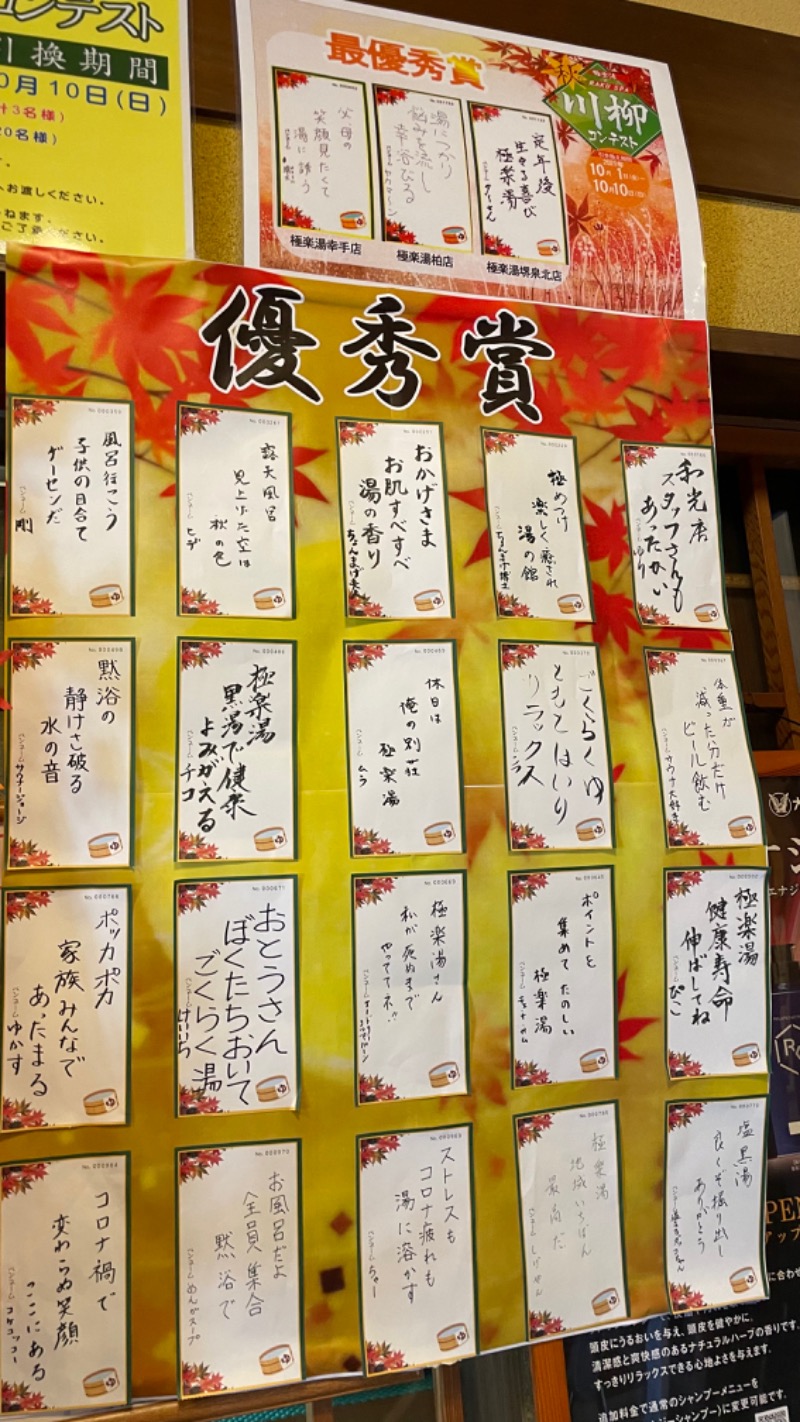 コンテスト
引換期間
0月10日(日)
計3名様)
20名様)
お渡しください。
ねます。
ご了承ください。
最優秀賞
秋
RAKU SPA
川柳
コンテスト
10月1日
10月10日
父母の
笑顔見たくて
湯に誘う
極楽湯幸手店
湯につかり
悩みを流し
幸浴びる
極楽湯柏店
定年後
生きる喜び
極楽湯
極楽湯堺泉北店
優秀賞
風呂行こう
子供の目合て
ゲーセンだ
ペンネーム 剛
露天風呂
見上げた空は
秋の色
ペンネーム ヒデ
おかげさま
お肌すべすべ
湯の香り
極めつけ
楽しく癒され
湯の館
ペンネーム ちょんまげ博士
和光店
スタッフさんも
あったかい
ペンネーム ゆり
黙浴の
静けさ破る
水の音
ペンネーム サウナージョージ
極楽湯
黒湯で健康
よみがえる
ペンネーム チコ
休日は
俺の別荘
極楽湯
ペンネーム ムラ
ごくらくゆ
ともとはいり
リラックス
体重が
減った分だけ
ビール飲む
ペンネーム サウナ大好き
ポッカポカ
家族みんなで
あったまる
ペンネーム ゆかす
おとうさん
ぼくたちおいて
ごくらく湯
ペンネーム けいいち
極楽湯さん
私が死ぬまで
やっててネ!!
ポイントを
集めてたのしい
極楽湯
極楽湯
健康寿命
伸ばしてね
ペンネーム ぴこ
コロナ禍で
変わらぬ笑顔
ここにある
ペンネーム コケコッコー
お風呂だよ
全員集合
黙浴で
ペンネーム めんがスープ
ストレスも
コロナ疲れも
湯に溶かす
ペンネーム ちゅー
極楽湯
地域いちばん
最高だ
ペンネーム しげやん
塩黒湯
良くぞ掘り出し
ありがとう
頭皮にうるおいを与え、頭皮を健やかに。
清潔感と爽快感のあるナチュラルハーブの香りです。
すっきりリラックスできる心地よさを与えます。
追加料金で通常のシャンプーメニューを
シャンプー)に変更可能です。